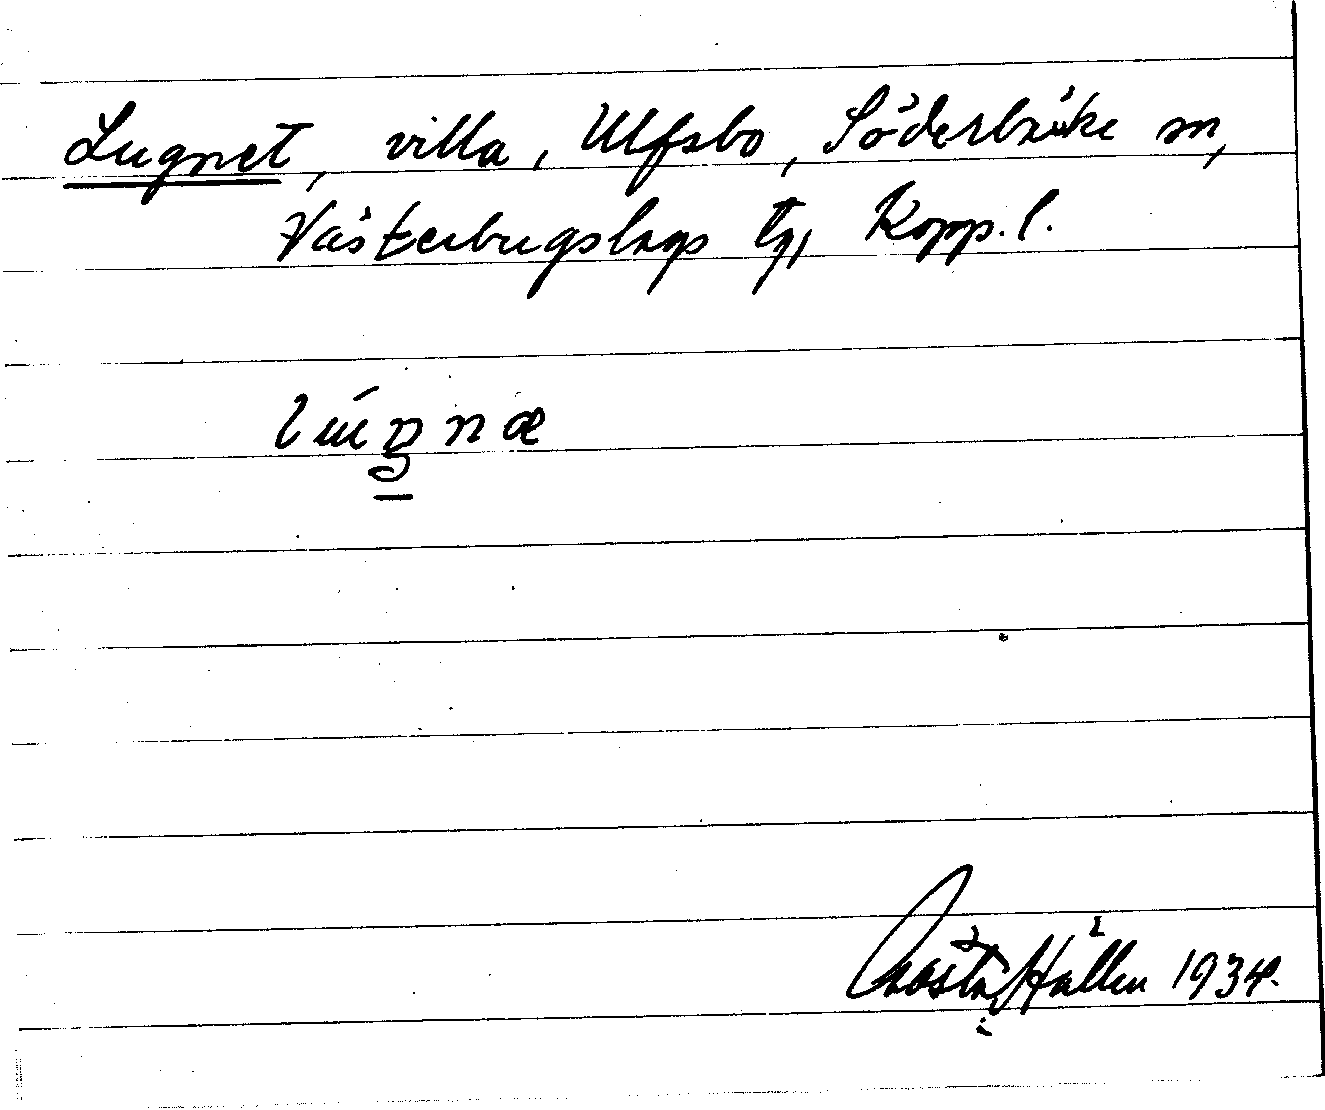 Lugnet, villa, Ulfsbo, Söderbärke sn,
Västerbergslags tg, Kopp. l.
Gösta Hallén 1934.